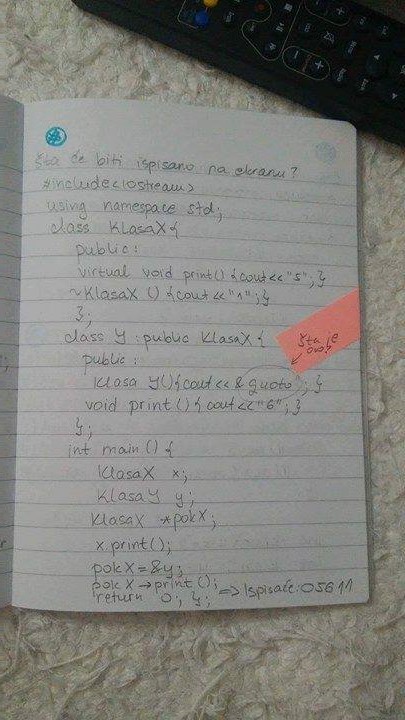 Šta će biti ispisano na ekranu?
#include<iostream>
using namespace std;
class KlasaX{
public:
virtual void print(){cout<<"5";}
~KlasaX(){cout<<"1";}
};
class Y:public KlasaX{
Šta je ovo?
public:
Klasa Y(){cout<<&quoto";}
void print(){cout<<"6";}
};
int main(){
KlasaX x;
KlasaY y;
KlasaX *pokX;
x.print();
pokX=&y;
pokX→print();
return 0; }; => Ispisaće:05611